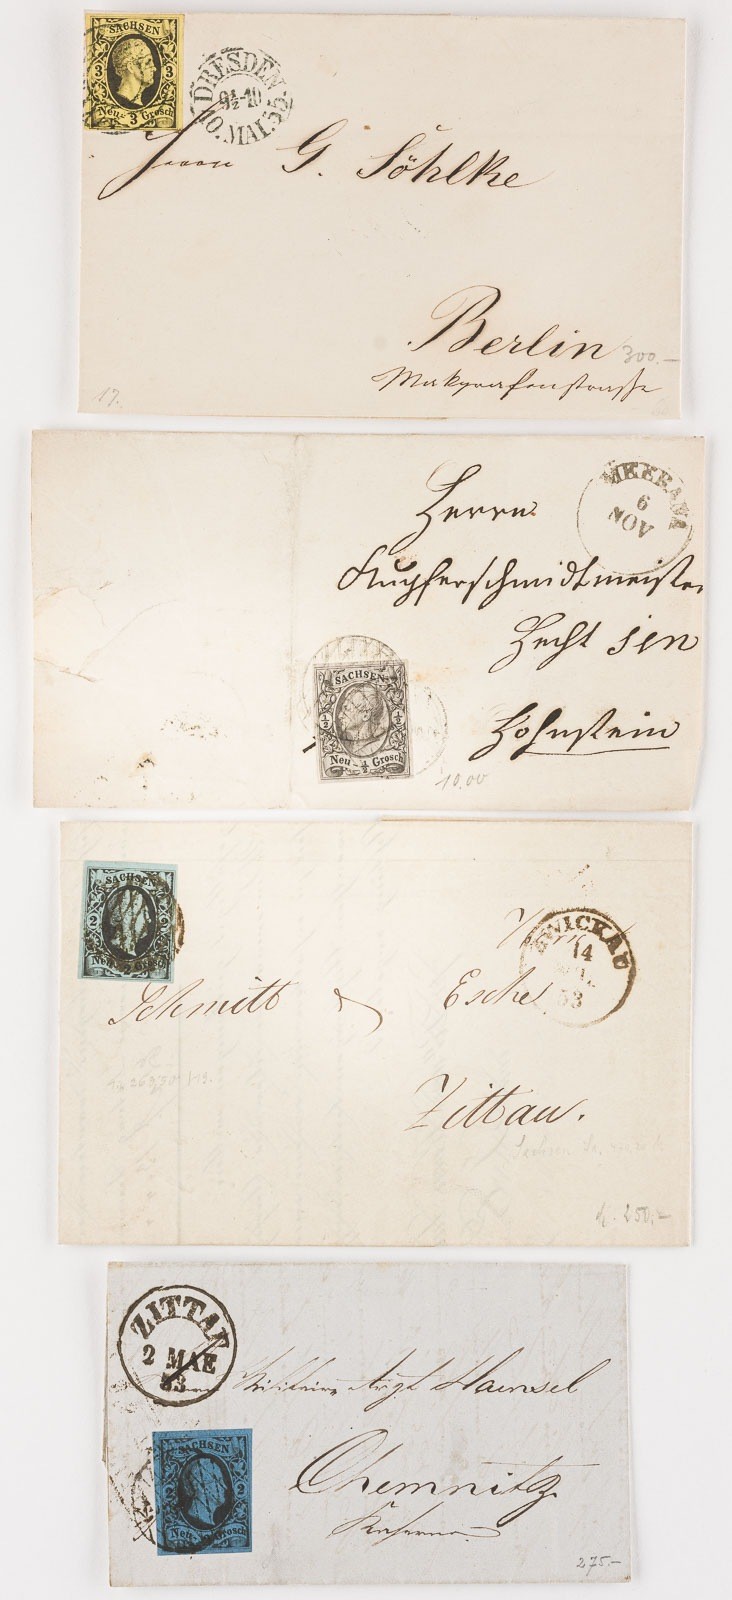 SACHSEN
3 3
Neu- 3 Grosch
DRESDEN
9½-10
10.MAI.55
Herrn G. Söhlke
Berlin
300.-
Markgrafenstrasse
17.
MEERANE
6
NOV
Herrn
Kupferschmidtmeister
Hecht sen
Hohnstein
SACHSEN
½ ½
Neu - ½ Grosch
10.00
SACHSEN
2
Neu-
ZWICKAU
14
53
Herrn
Schmitt & Esche
Zittau.
250.-
ZITTAU
2 MAE
53
Haensel
Chemnitz
Kaserne
SACHSEN
2 2
Neu- Grosch
275.-